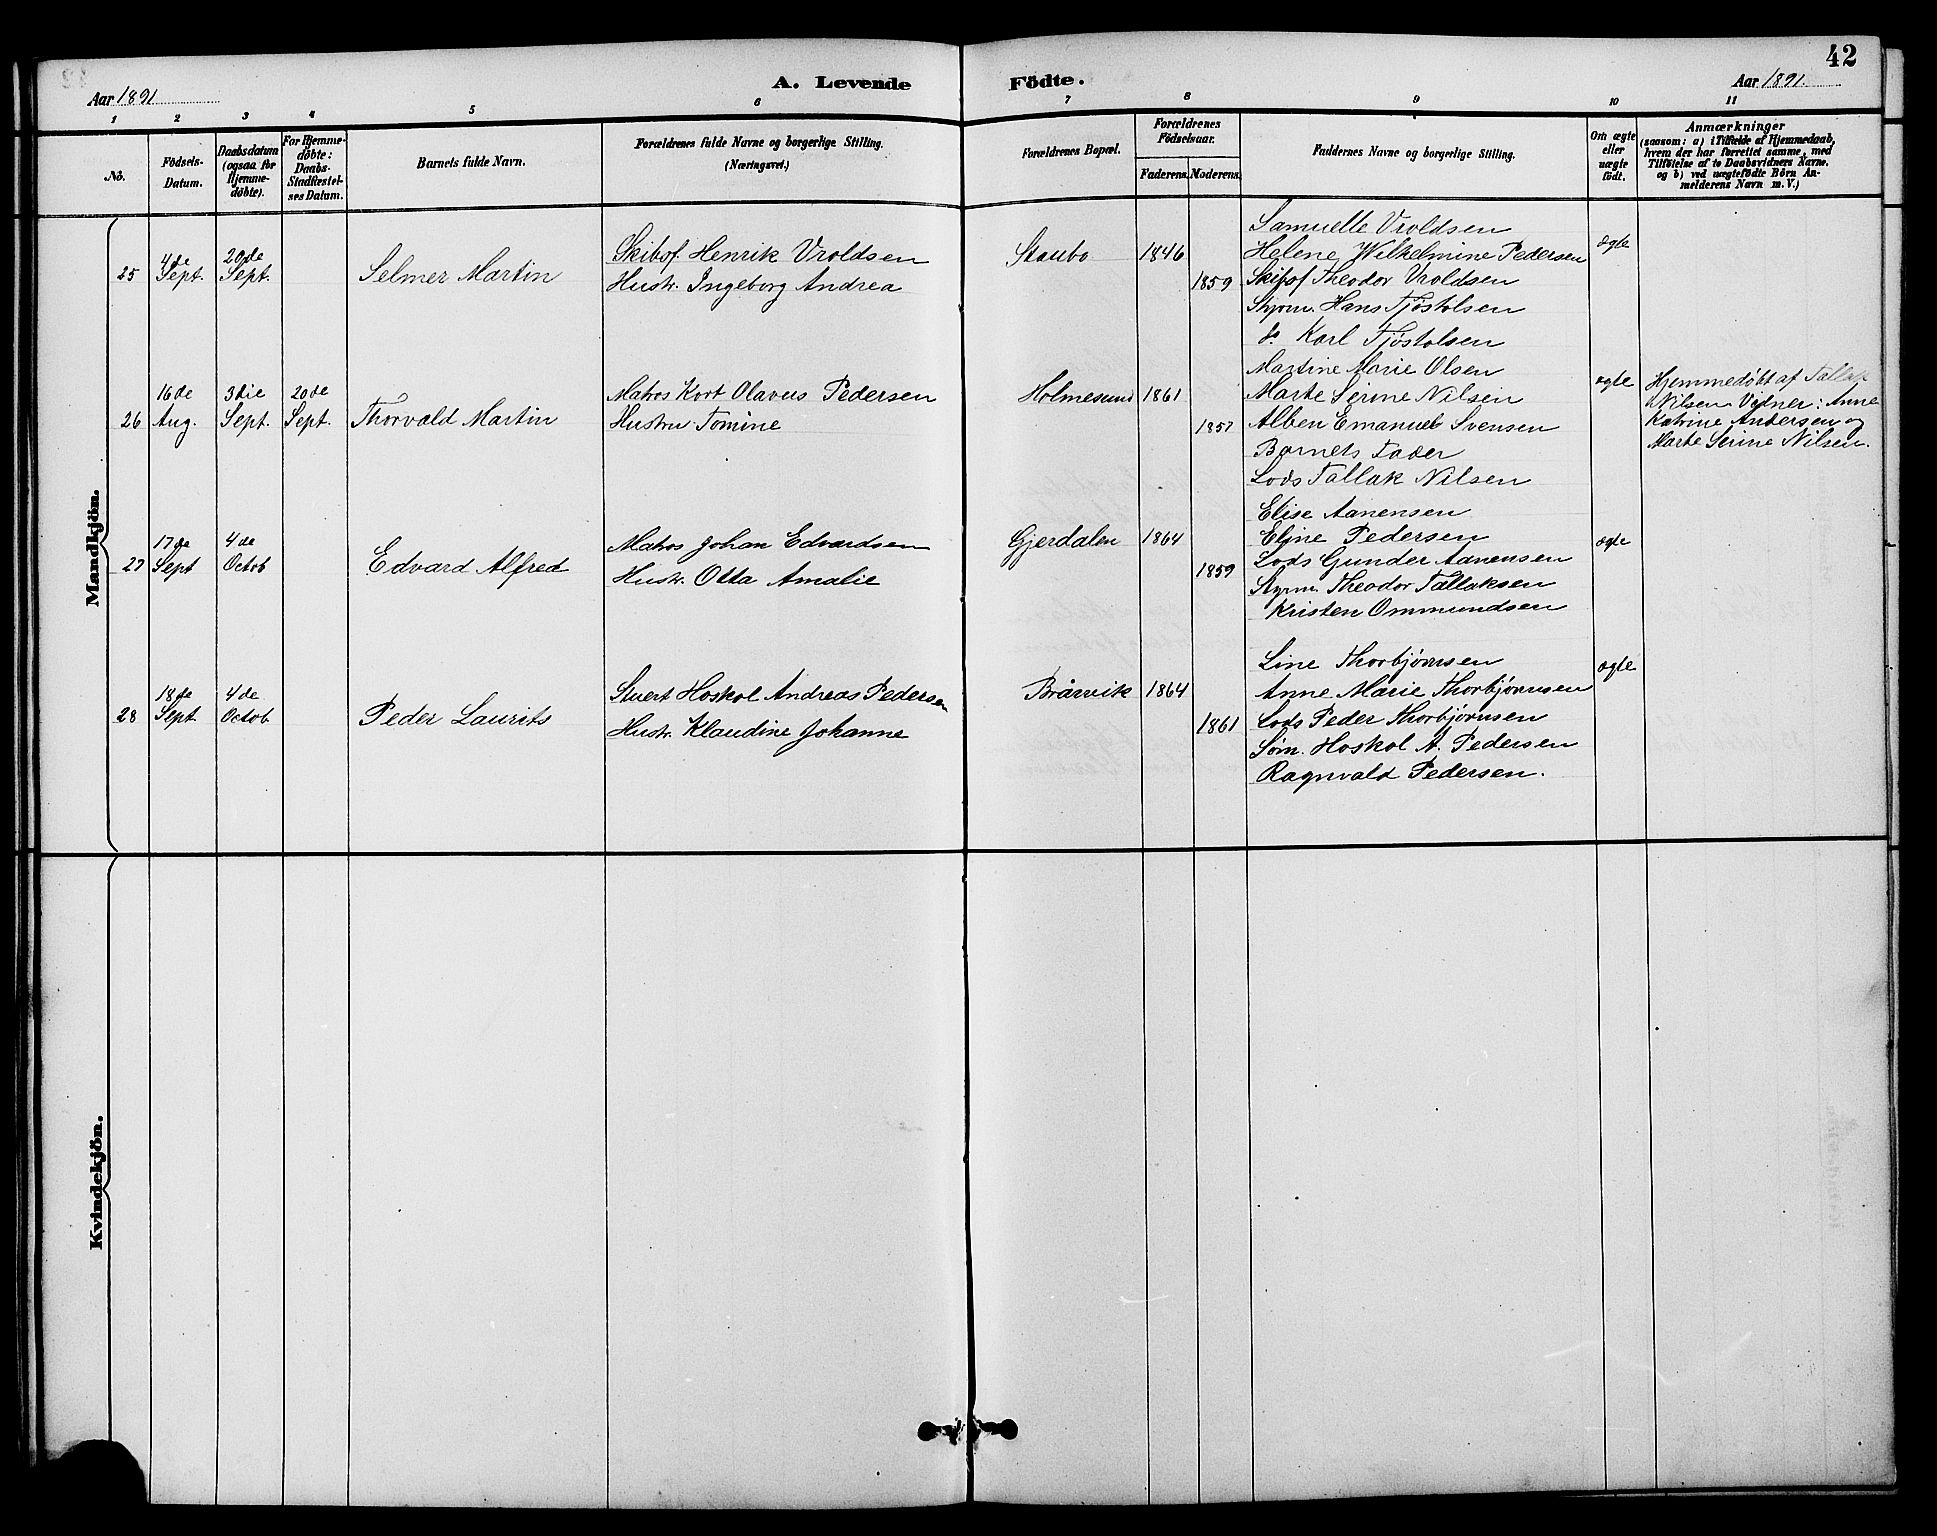 42
Aar 1891
A. Levende Födte.
Aar 1891.
1 2 3 4 5 6 7 8 9 10 11
No.
Födsels-
Datum.
Daabsdatum
(ogsaa for
Hjemme-
döbte).
For Hjemme-
döbte:
Daabs-
Stadfæstel-
ses Datum.
Barnets fulde Navn.
Forældrenes fulde Navne og borgerlige Stilling.
(Næringsvei.)
Forældrenes Bopæl.
Forældrenes
Födselsaar.
Faderens. Moderens.
Faddernes Navne og borgerlige Stilling.
Om ægte
eller
uægte
födt.
Anmærkninger
(saasom: a) i Tilfælde af Hjemmedaab,
hvem der har forrettet samme, med
Tilföielse af to Daabsvidners Navne.
og b) ved uægtefödte Börn An-
melderens Navn m. V.)
Mandkjön.
25
4de
Sept.
20de
Sept.
Selmer Martin
Skibsf. Henrik Vroldsen
Hustr. Ingeborg Andrea
Staubo
1846
1859
Samuelle Vroldsen
Helene Wilhelmine Pedersen
Skibsf Theodor Vroldsen
Styrm. Hans Tjøstolsen
do. Karl Tjøstolsen
ægte
26
16de
Aug.
3die
Sept.
20de
Sept.
Thorvald Martin
Matros Kort Olavus Pedersen
Hustru Tomine
Holmesund
1861
1857
Martine Marie Olsen
Marte Serine Nilsen
Alben Emanuel Svensen
Barnets Fader
Lods Tallak Nilsen
ægte
Hjemmedøbt af Tallak
Nilsen Vidner: Anne
Katrine Andersen og
Marte Serine Nilsen.
27
17de
Sept
4de
Octob
Edvard Alfred
Matros Johan Edvardsen
Hustr. Otta Amalie
Gjerdalen
1864
1859
Elise Aanensen
Eline Pedersen
Lods Gunder Aanensen
Styrm. Theodor Tallaksen
Kristen Ommundsen
ægte
28
18de
Sept.
4de
Octob
Peder Laurits
Stuert Hoskol Andreas Pedersen
Hustr. Klaudine Johanne
Bråtvik
1864
1861
Line Thorbjørnsen
Anne Marie Thorbjørnsen
Lods Peder Thorbjørnsen
Søm. Hoskol A. Pedersen
Ragnvald Pedersen.
ægte
Kvindekjön.